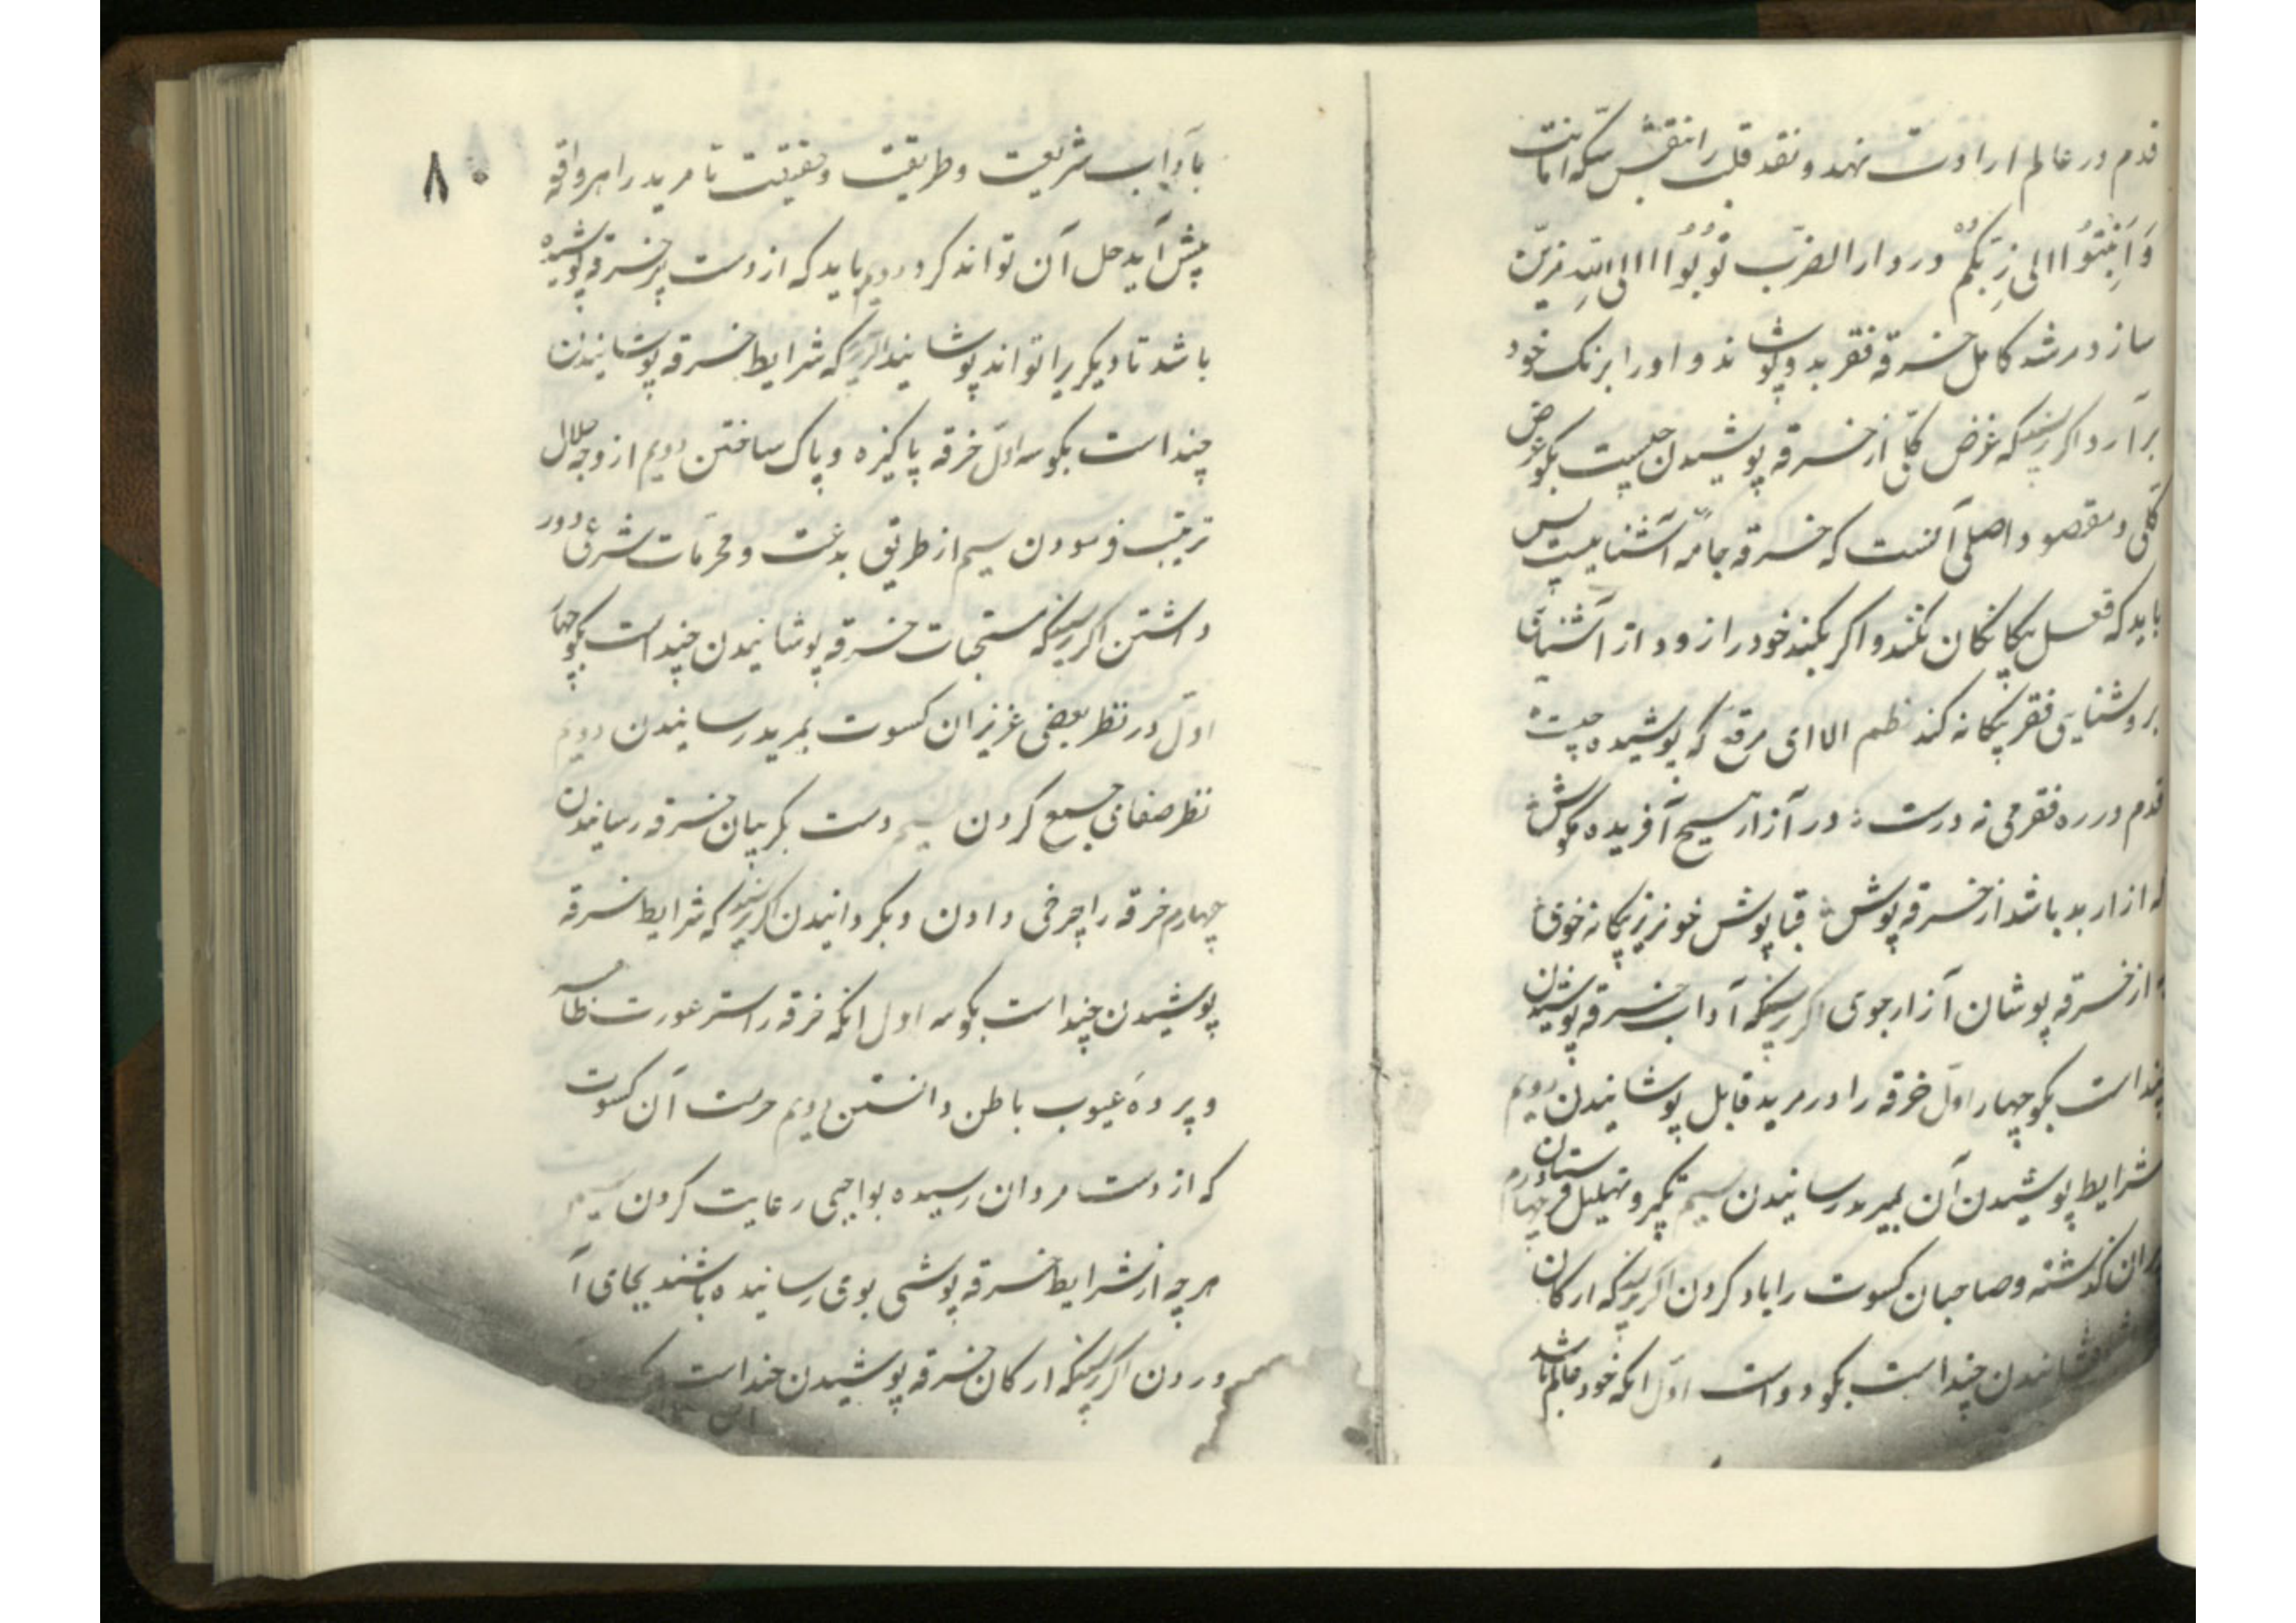 قدم در عالم ارادت نهد و نقد قلب را بنقش سکه انابت
وَاَنِیبُوا اِلی رَبِّکُم در دار الضرب تُوبُوا اِلی اللهِ مزین
سازد مرشد کامل خرقه فقر بدو پوشاند و او را برنک خود
برآرد اکر پرسند که غرض کلی از خرقه پوشیدن چیست بکو غرض
کلی و مقصود اصلی آنست که خرقه جامه آشناییست پس
باید که فعل بیکانکان نکند و اکر بکند خود را زود از آشنایی
بروشنایی فقر بیکانه کند نظم الا ای مرقع که پوشیده چیست
قدم در ره فقر می نه درست در آزار هیچ آفریده مکوش
که آزار بد باشد از خرقه پوش قباپوش خونریز بیکانه خوی
به از خرقه پوشان آزار جوی اکر پرسند که آداب خرقه پوشیدن
چند است بکو چهار اول خرقه را در مرید قابل پوشانیدن دویم
شرایط پوشیدن آن بمرید رسانیدن سیم تکبیر و تهلیل چهارم
پیران کذشته و صاحبان کسوت را یاد کردن اکر پرسند که ارکان
خرقه پوشانیدن چند است بکو دو است اول انکه خود عالم باشد
۸۰
بآداب شریعت و طریقت و حقیقت تا مرید را هر واقعه
پیش آید حل آن تواند کرد دویم باید که از دست پیر خرقه پوشیده
باشد تا دیکریرا تواند پوشانید اکر پرسند که شرایط خرقه پوشانیدن
چند است بکو سه اول خرقه پاکیزه و پاک ساختن دویم از وجه حلال
ترتیب فرمودن سیم از طریق بدعت و محرمات شرعی دور
داشتن اکر پرسند که مستحبات خرقه پوشانیدن چند است بکو چهار
اول در نظر بعضی عزیزان کسوت بمرید رسانیدن دویم
نظر صفایی جمع کردن سیم دست بکریبان خرقه رسانیدن
چهارم خرقه را چرخی دادن و بکردانیدن اکر پرسند که شرایط خرقه
پوشیدن چند است بکو سه اول انکه خرقه را ستر عورت ظاهر
و پرده عیوب باطن دانستن دویم حرمت آن کسوت
که از دست مردان رسیده بواجبی رعایت کردن سیم
هرچه از شرایط خرقه پوشی بوی رسانیده باشند بجای آ
وردن اکر پرسند که ارکان خرقه پوشیدن چند است